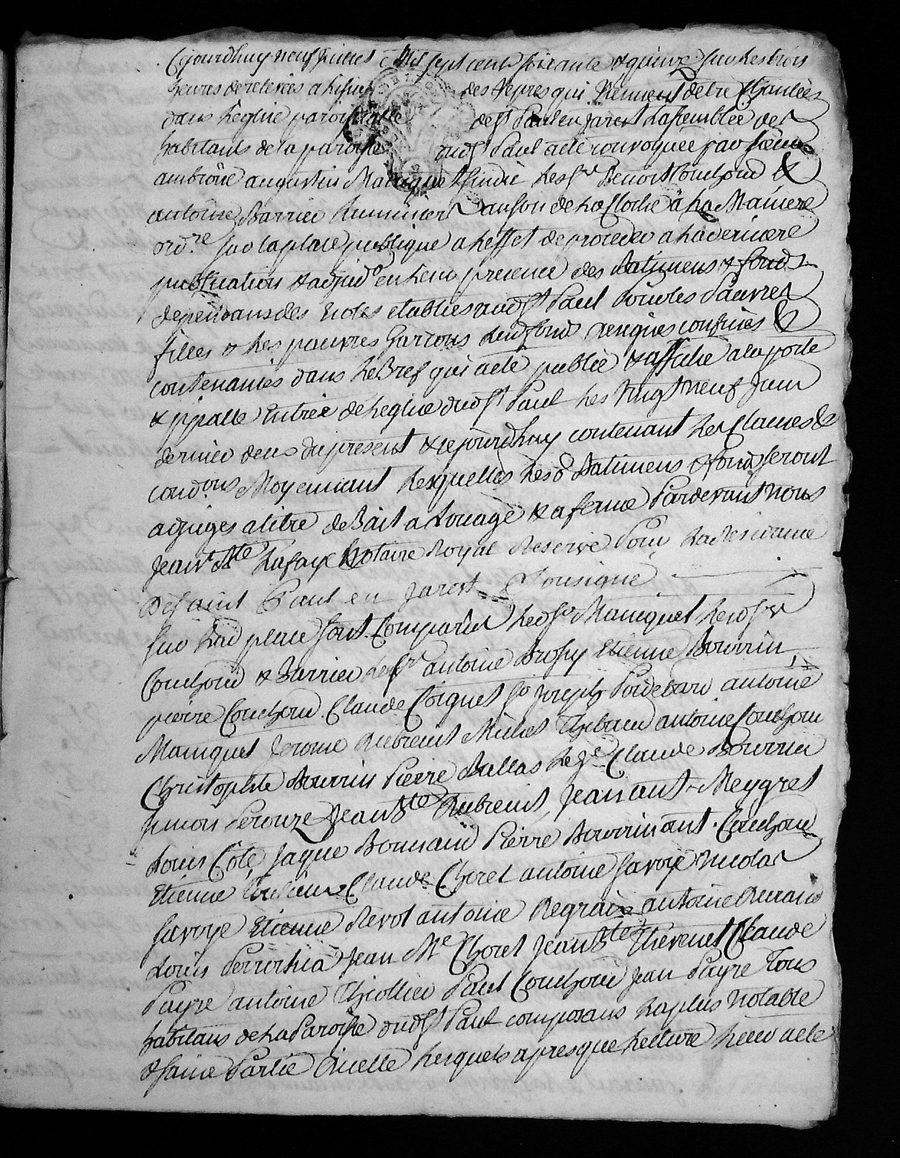 Cejourdhuy neuf juillet Mil sept cent soixante & quinze sur les trois
heures de relevée a l'issue des vepres qui viennent detre Chantées
dans leglise paroissialle de st Paul en jarest Lassemblée des
habitans de la paroisse dudt st Paul a eté convoquée par sieur
ambroise augustin Maniquet sindic les srs Benoist Couchoud &
antoine Barrier au son de la Cloche a la Maniere
ordre sur la place publique a leffet de proceder a la derniere
publication & adjudon en leur presence des Batimens & fonds
dependans des Ecoles etablies audt st Paul Pour les Pauvres
filles & les pauvres Garçons lesd fonds designés confinés &
contenancés dans le Bref qui a eté publié & affiché a la porte
& ppalle Entrée de leglise dudt st Paul les vingt neuf juin
dernier deux du present & cejourdhuy contenant les Clauses &
condons Moyennant lesquelles lesd Batimens & fonds seront
adjugés a titre de Bail a Louage & a ferme Pardevant nous
jean Bte Lafay Notaire Royal Reservé Pour la Residance
De saint Paul en jarest soussigné
sur lad place sont Comparus ledt sr Maniquet lesdts srs
Couchoud & Barrier les srs antoine Brossy Etienne Bourrin
pierre Couchoud Claude Corgnet joseph antoine
Maniquet Jerome Dubreuil Michel Thibaud antoine Couchoud
Christophle Bourrin Pierre Ballas Claude Bourrin
simon Perouze Jean Bte Dubreuil Jean ant. Meygret
Louis Côte Jaque Bonnand Pierre Bourrin ant. Couchoud
Etienne Claude Choret antoine savoye Nicolas
savoye Etienne Revol antoine Degraix antoine Renaud
Louis Jean Me Choret Jean Bte Thevenet Claude
Payre antoine Thiollier Paul Couchoud Jean Payre Tous
habitans de la Paroisse dudt st Paul composans la plus notable
& saine Partie dicelle lesquels apres que lecture leur a eté